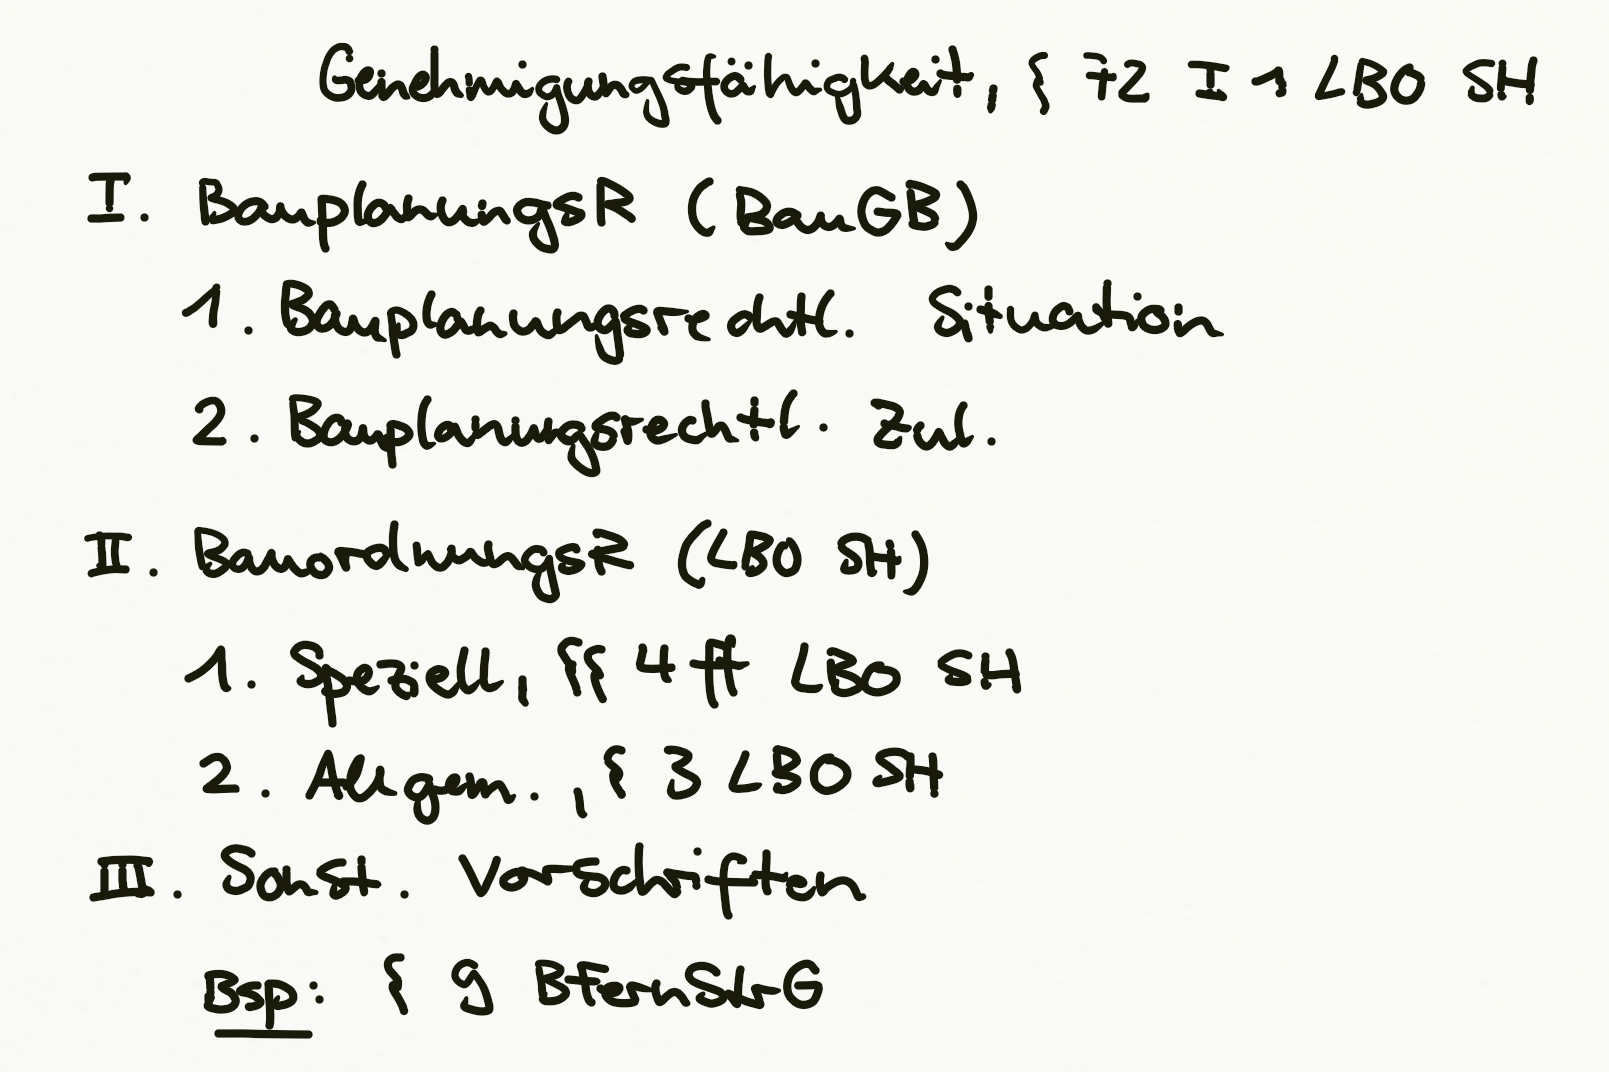 Genehmigungsfähigkeit, § 72 I 1 LBO SH
I. BauplanungsR (BauGB)
1. Bauplanungsrechtl. Situation
2. Bauplanungsrechtl. Zul.
II. BauordnungsR (LBO SH)
1. Speziell, §§ 4 ff LBO SH
2. Allgem., § 3 LBO SH
III. Sonst. Vorschriften
Bsp: § 9 BFernStrG